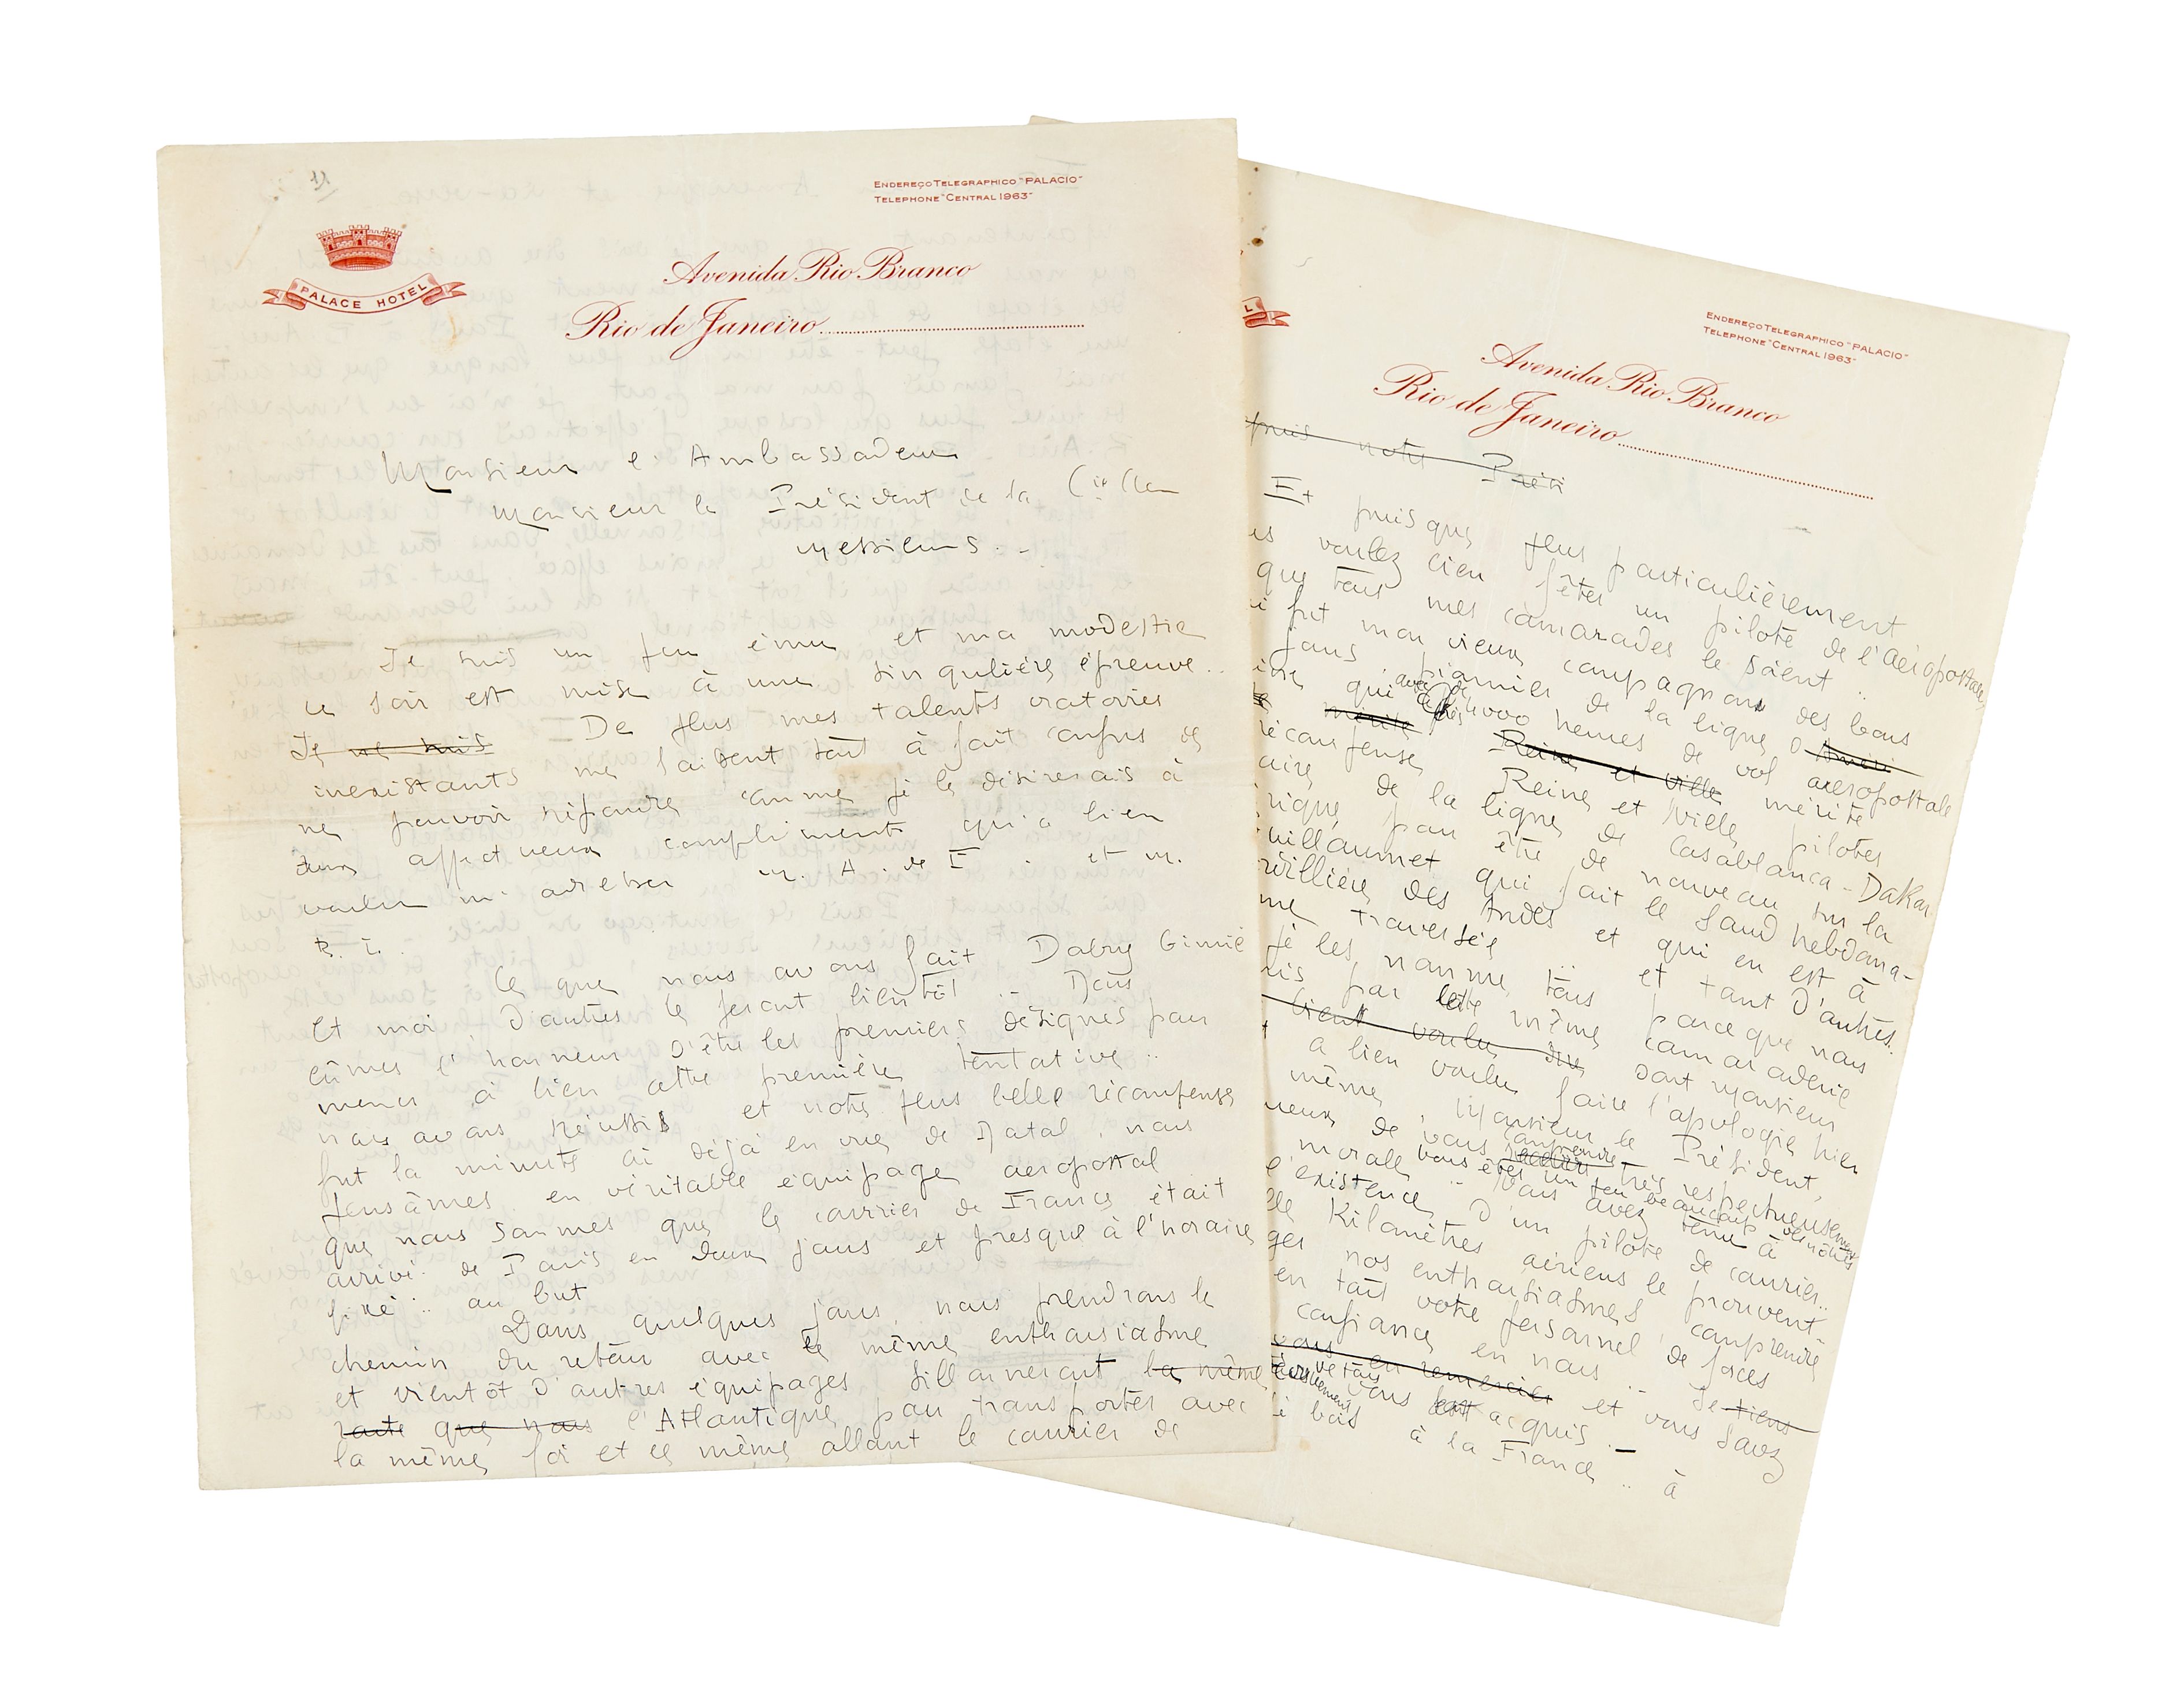 1).
PALACE HOTEL
ENDEREÇO TELEGRAPHICO "PALACIO"
TELEPHONE "CENTRAL 1963"
Avenida Rio Branco
Rio de Janeiro
Monsieur l'Ambassadeur
Monsieur le Président de la Cie
Messieurs. -
Je suis un peu ému et ma modestie
ce soir est mise à une singulière épreuve..
Je ne suis De plus mes talents oratoires
inexistants me laissent tout à fait confus de
ne pouvoir répondre comme je le désirerais à
affectueux compliments qu'a bien
voulu m'adresser M. A. de I. et M.
R. T.
Ce que nous avons fait Dabry Gimié
et moi d'autres le feront bientôt .. Nous
eûmes l'honneur d'être les premiers désignés pour
mener à bien cette première tentative ..
nous avons réussi et notre plus belle récompense
fut la minute où déjà en vue de Natal, nous
pensâmes en véritable équipage aeropostal
que nous sommes que le courrier de France était
arrivé de Paris en deux jours et presque à l'horaire
fixé .. au but
Dans quelques jours nous prendrons le
chemin du retour avec le même enthousiasme
et bientôt d'autres équipages sillonneront la même
route que nous l'Atlantique pour transporter avec
la même foi et le même allant le courrier de
L
ENDEREÇO TELEGRAPHICO "PALACIO"
TELEPHONE "CENTRAL 1963"
Avenida Rio Branco
Rio de Janeiro
puis notre Prési
Et puisque plus particulièrement
us voulez bien fêter un pilote de l'Aéropostale
que tous mes camarades le soient ..
i fut mon vieux compagnon des bons
jours, pionnier de la ligne d'Améri
qui avec 4000 heures de vol aeropostale
mérite Reine et Ville mérite
récompense, Reine et Ville, pilotes
aire de la ligne de Casablanca - Dakar
rique pour être de nouveau sur la
uillaumet qui fait le Sand hebdoma-
des Andes et qui en est à
me traversée .. et tant d'autres.
je les nomme tous parce que nous
nis par cette même camaraderie
bient voulu dire dont Monsieur
a bien voulu faire l'apologie hier
même, Monsieur le Président,
ueux de vous comprendre très respectueusement
morale .. vous êtes un peu beaucoup des nôtres
Vous avez tenu à
l'existence d'un pilote de courrier..
lle Kilomètres aériens le prouvent -
ger nos enthousiasmes, comprendre
en tout votre personnel de forces
confiance en nous .. Je tiens
vous en remercier et vous savez
vous est acquis. -
bois à la France .. à